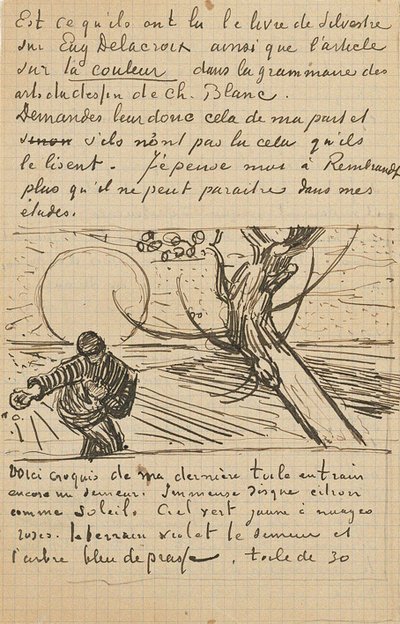 Est ce qu'ils ont lu le livre de Silvestre
sur Eug Delacroix ainsi que l'article
sur la couleur dans la grammaire des
arts du dessin de Ch. Blanc.
Demandes leur donc cela de ma part et
sinon s'ils n'ont pas lu cela qu'ils
le lisent. J'epense moi à Rembrandt
plus qu'il ne peut paraitre dans mes
études.
Voici croquis de ma dernière toile en train
encore un Semeur. Immense disque citron
comme soleil. Ciel vert jaune à nuages
roses. le terrain violet le semeur et
l'arbre bleu de prusse. toile de 30